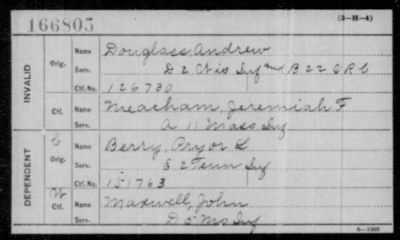 166805
(3-H-4)
INVALID
Orig.
Name Douglass, Andrew
Serv. D 2 Wis Inf and B 22 V R C
Ctf. No. 126730
Ctf.
Name Meacham, Jeremiah F
Serv. A 11 Mass Inf
DEPENDENT
C
Orig.
Name Berry, Pryor L
Serv. E 2 Tenn Inf
Ctf. No. 151763
W
Ctf.
Name Maxwell, John
Serv. D 5 Mo Inf